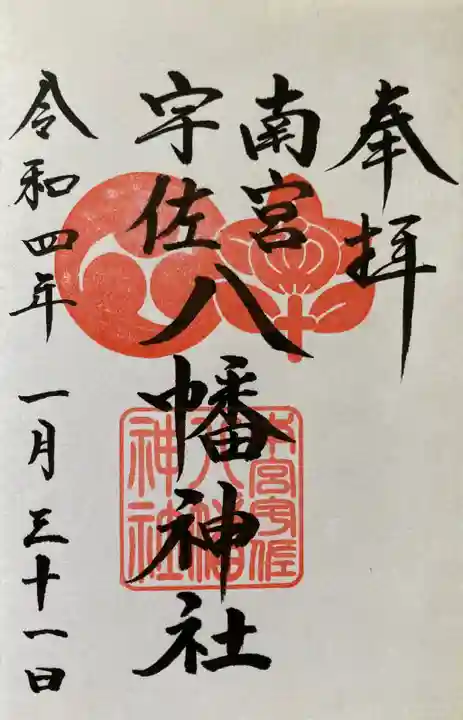 奉拝
南宮
宇佐八幡神社
令和四年 一月三十一日
八幡
神社